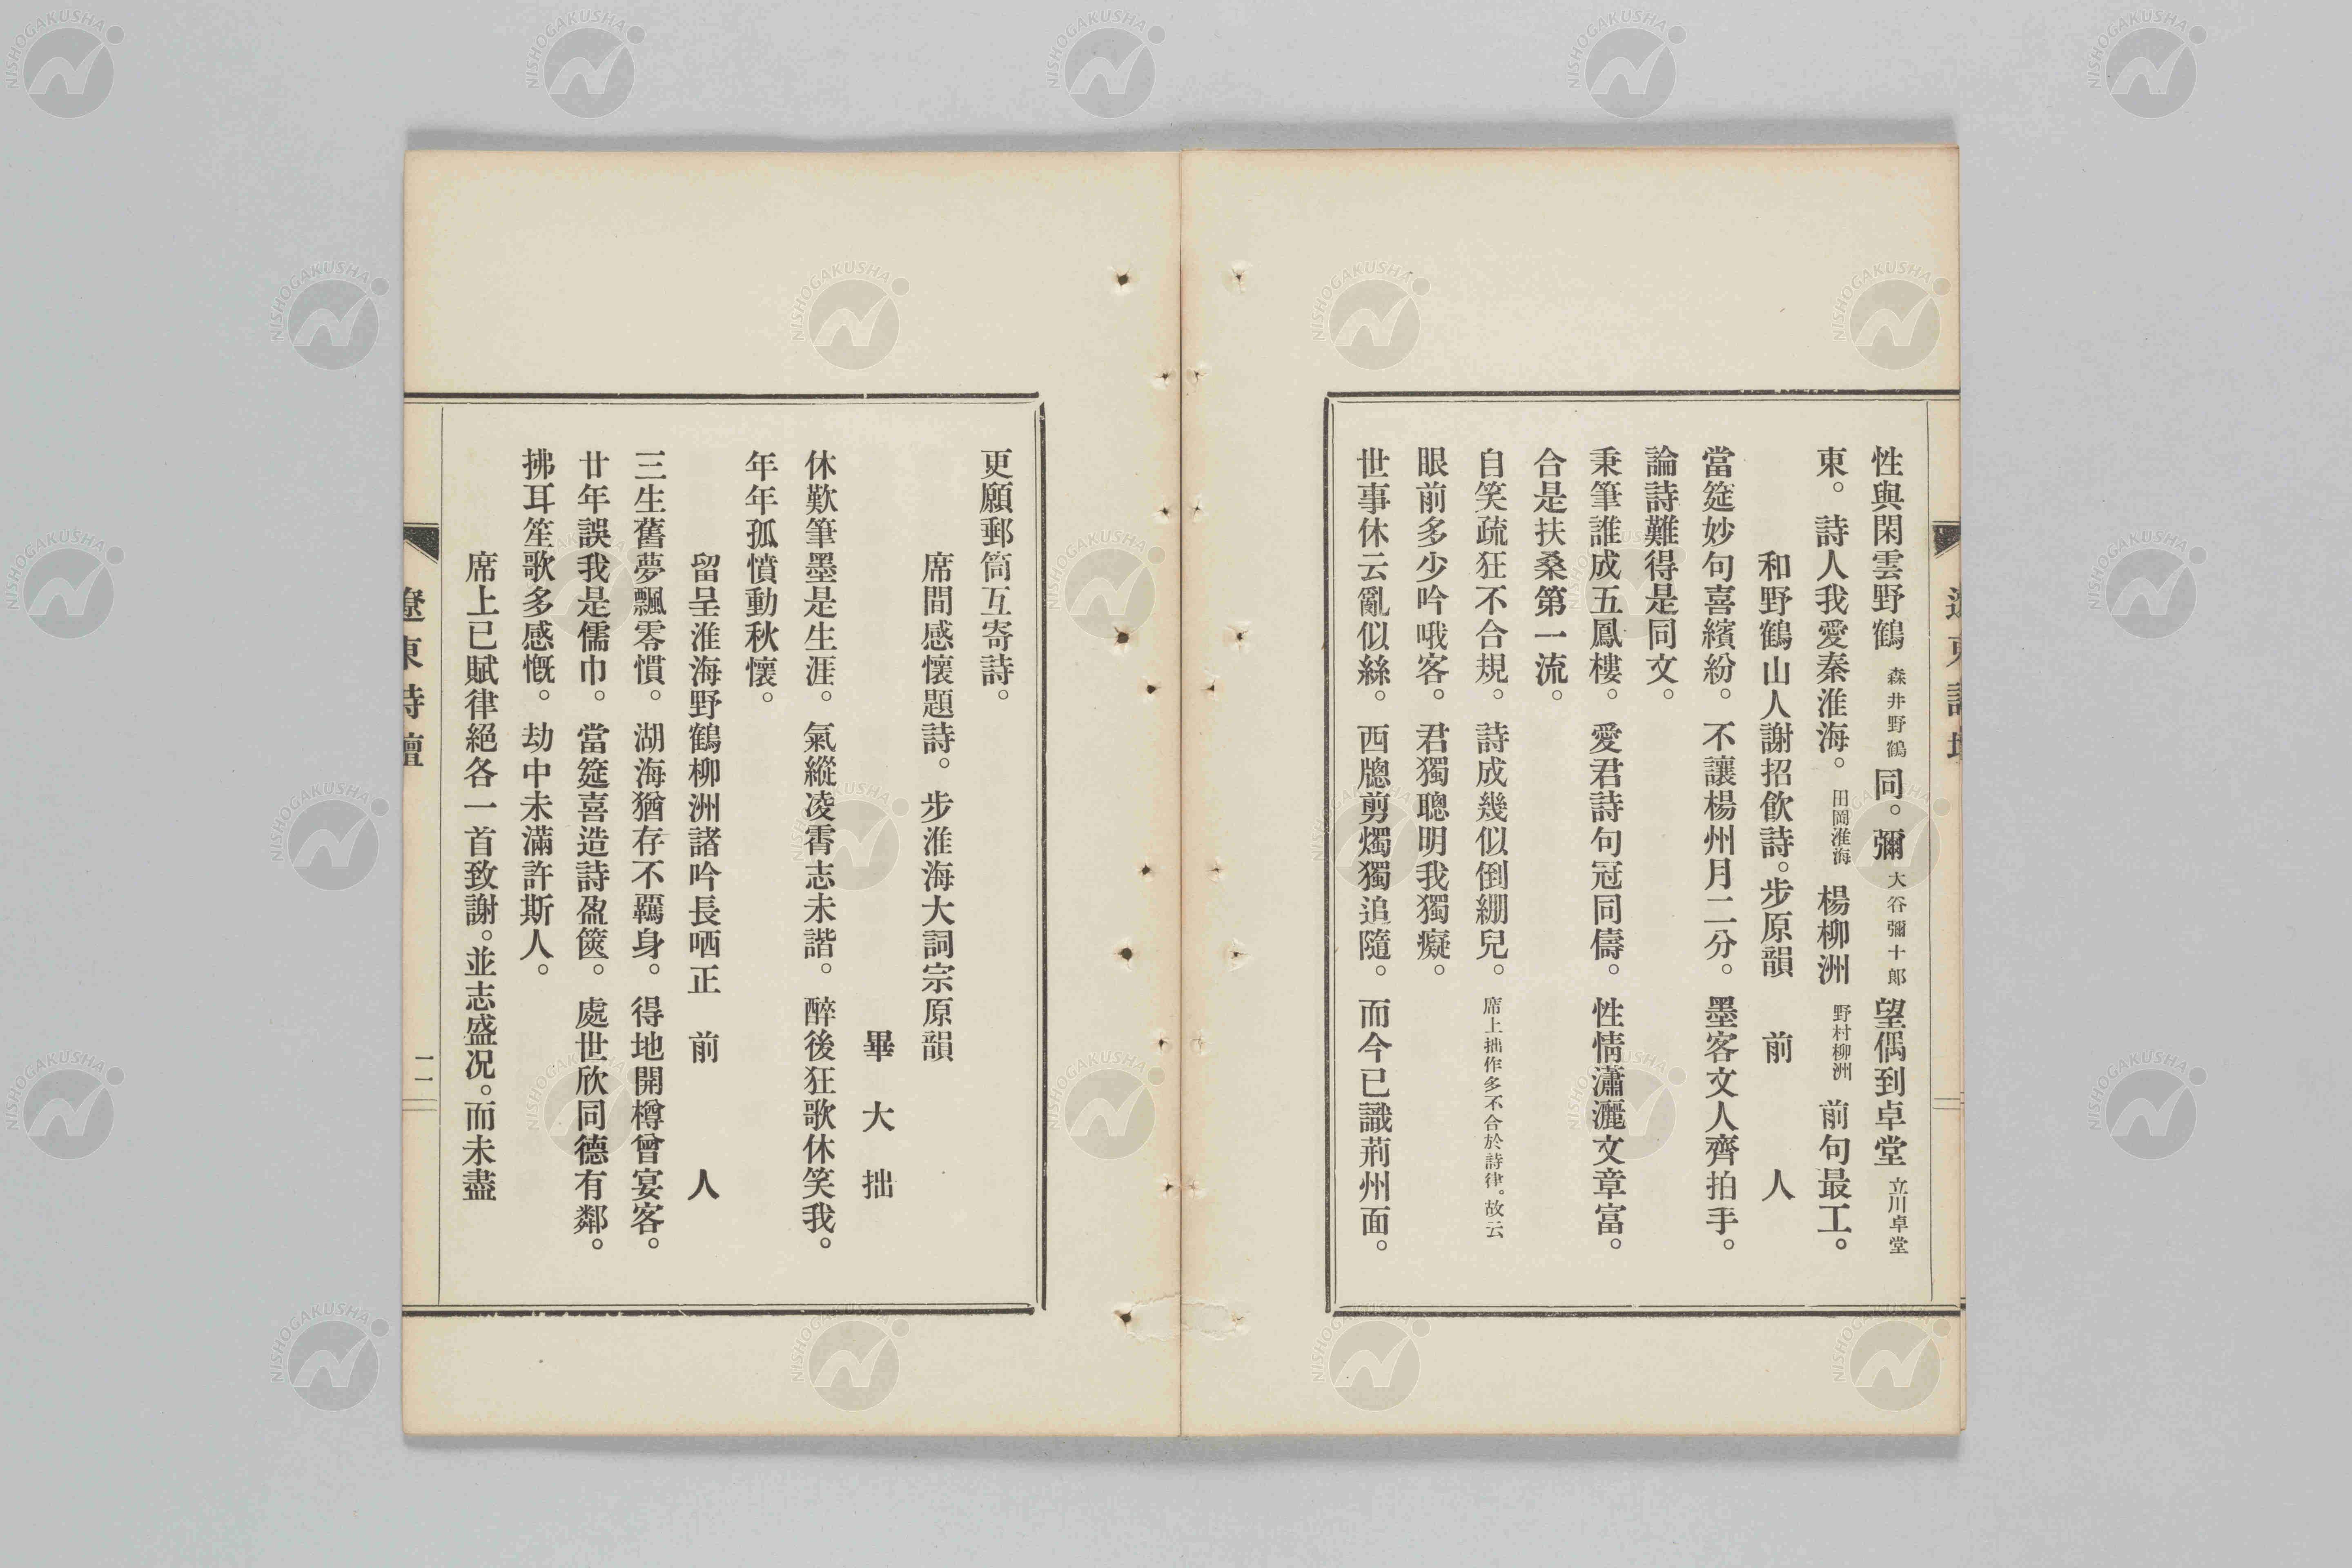 性與閑雲野鶴 森井野鶴 同。彌 大谷彌十郎 望偶到卓堂 立川卓堂
東。詩人我愛秦淮海。 田岡淮海 楊柳洲 野村柳洲 前句最工。
和野鶴山人謝招飮詩。步原韻 前人
當筵妙句喜繽紛。不讓楊州月二分。墨客文人齊拍手。
論詩難得是同文。
秉筆誰成五鳳樓。愛君詩句冠同儔。性情瀟灑文章富。
合是扶桑第一流。
自笑疏狂不合規。詩成幾似倒綳兒。 席上拙作多不合於詩律。故云
眼前多少吟哦客。君獨聰明我獨癡。
世事休云亂似絲。西牕剪燭獨追隨。而今已識荊州面。
更願郵筒互寄詩。
席間感懷題詩。步淮海大詞宗原韻
畢大拙
休歎筆墨是生涯。氣縱凌霄志未諧。醉後狂歌休笑我。
年年孤憤動秋懷。
留呈淮海野鶴柳洲諸吟長哂正 前人
三生舊夢飄零慣。湖海猶存不羈身。得地開樽曾宴客。
廿年誤我是儒巾。當筵喜造詩盈篋。處世欣同德有鄰。
拂耳笙歌多感慨。劫中未滿許斯人。
席上已賦律絕各一首致謝。並志盛况。而未盡
遼東詩壇
一一
NISHOGAKUSHA